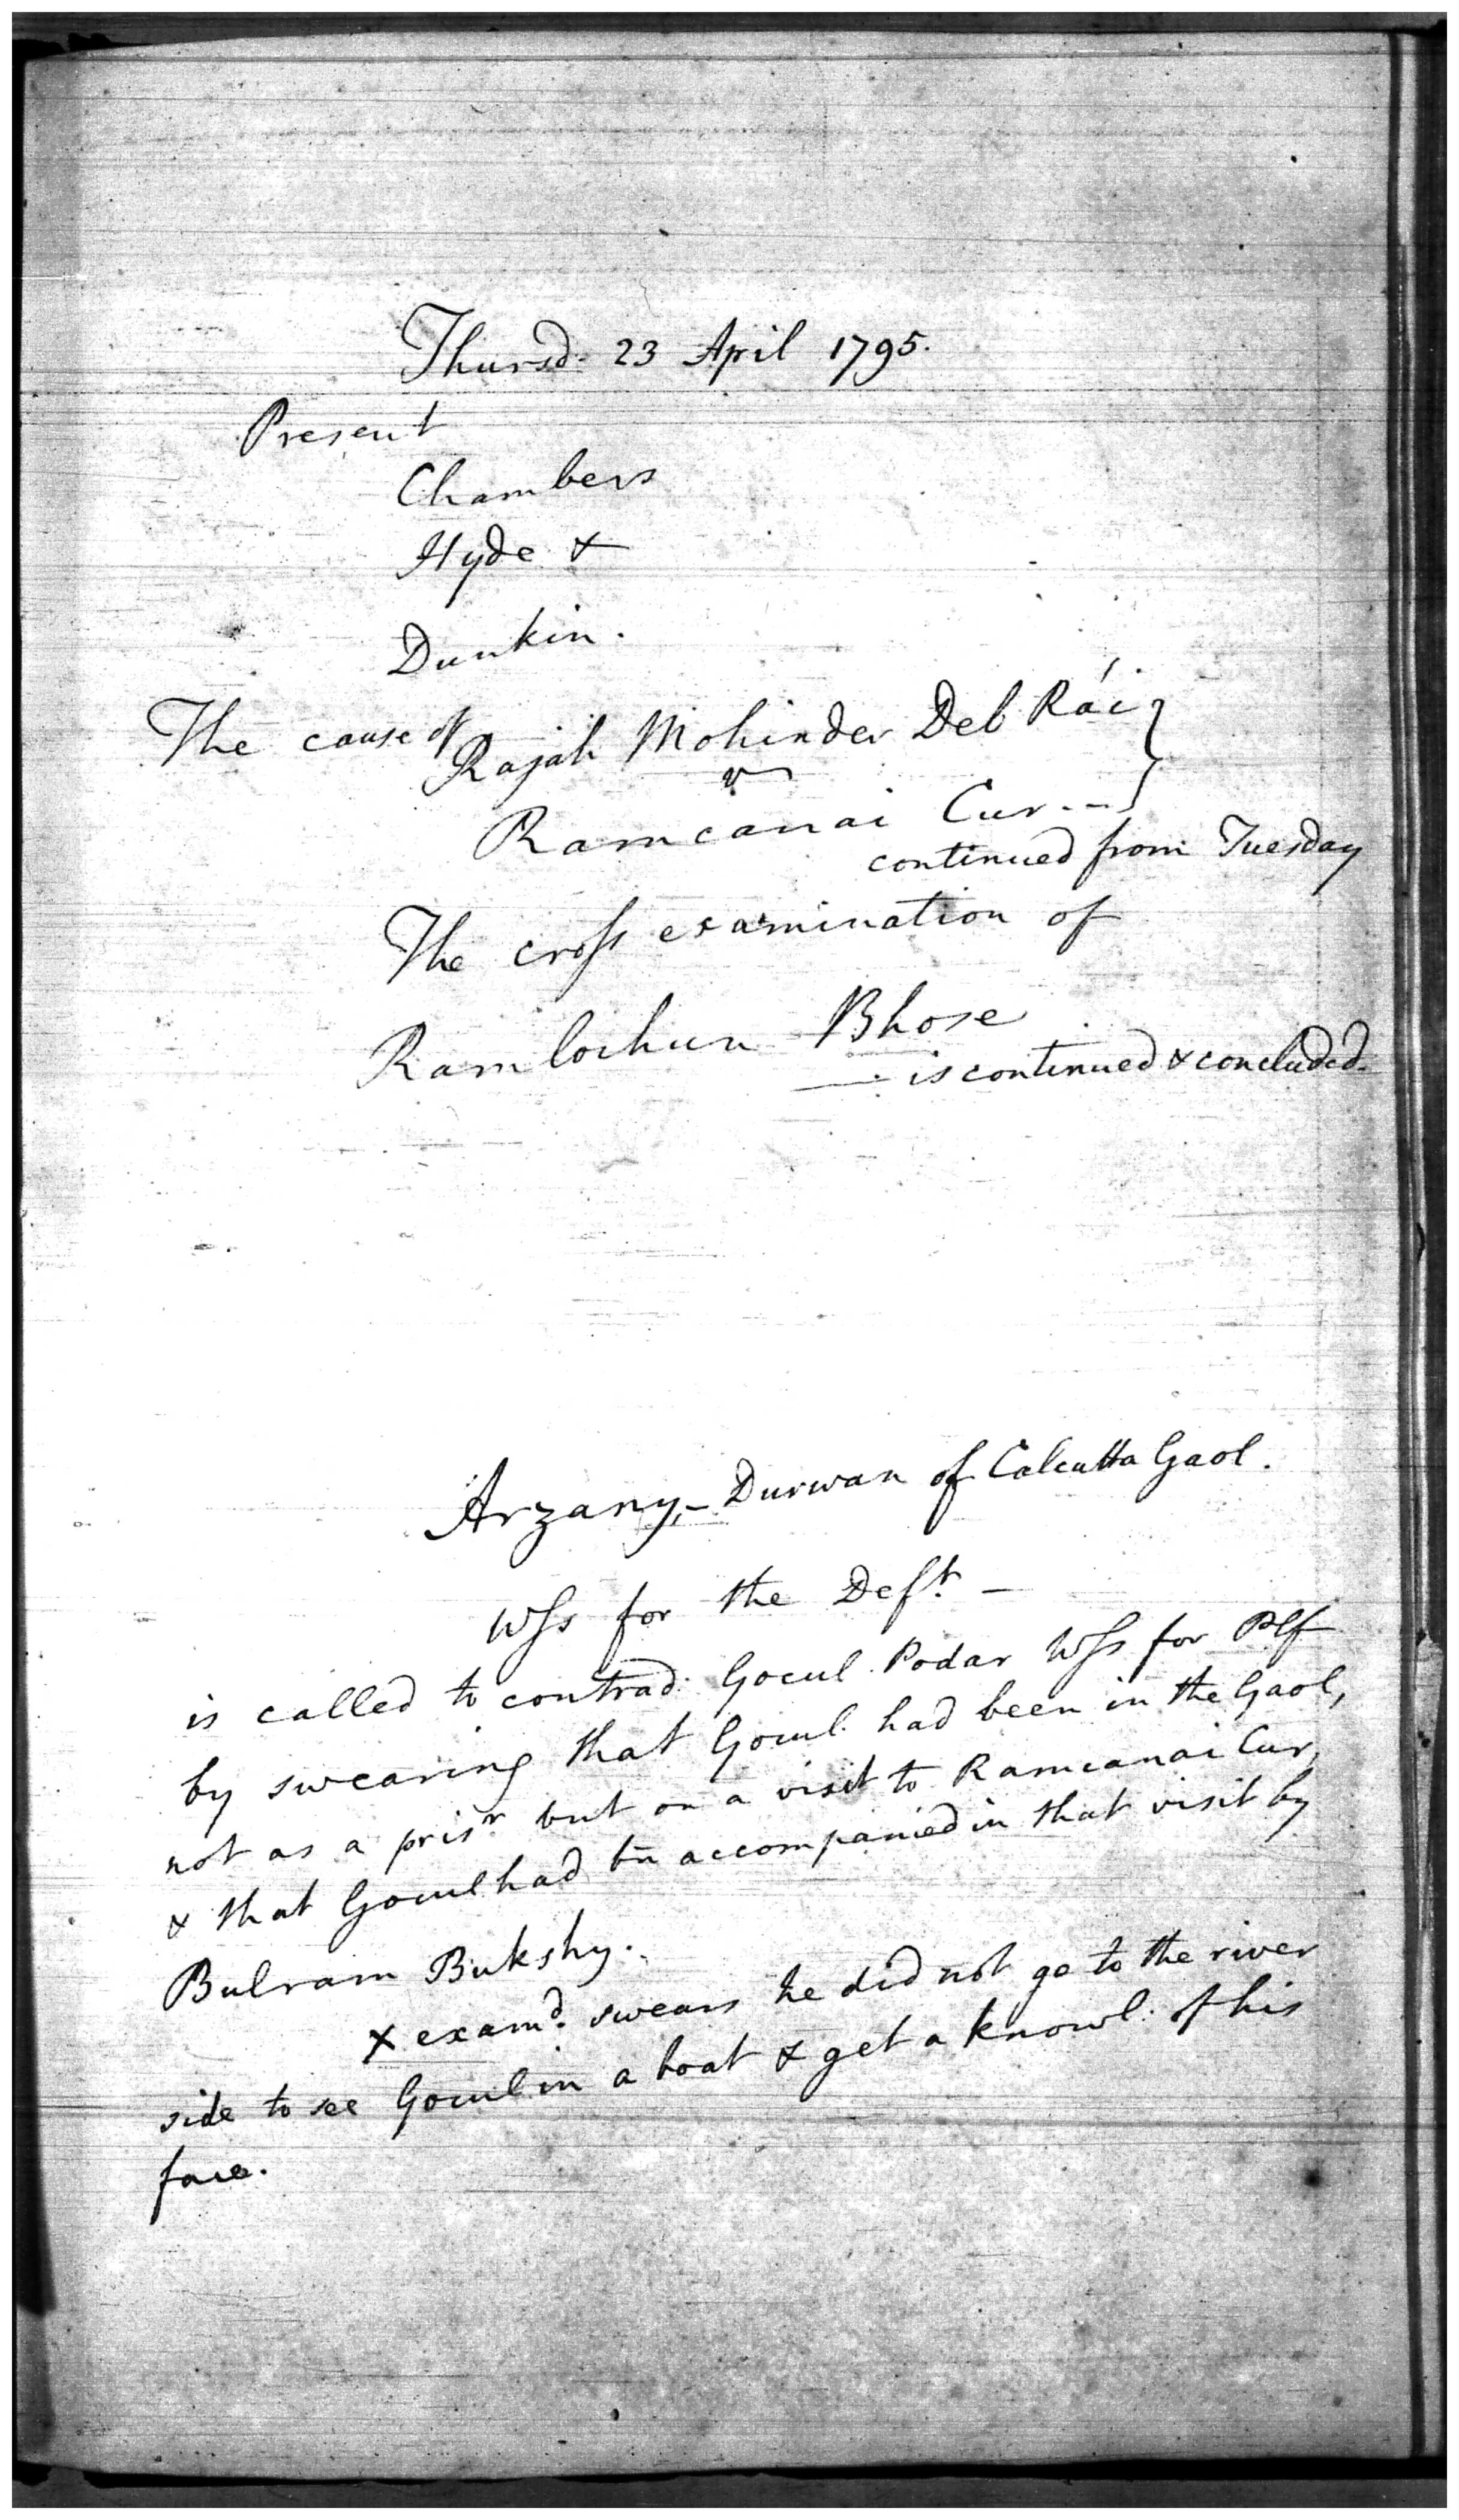 Thursd. 23 April 1795.
Present
Chambers
Hyde &
Dunkin.
The cause of Rajah Mohinder Deb Rái }
v
Ramcanai Cur --
continued from Tuesday
The cross examination of
Ramlochun Bhose
is continued & concluded.
Arzany, - Durwan of Calcutta Gaol.
Wss for the Deft. -
is called to contrad. Gocul Podar Wss for Plf
by swearing that Gocul had been in the Gaol,
not as a prisr but on a visit to Ramcanai Cur,
& that Gocul had bn accompanied in that visit by
Bulram Bukshy.
x examd. swears he did not go to the river
side to see Gocul in a boat & get a knowl. of his
face.